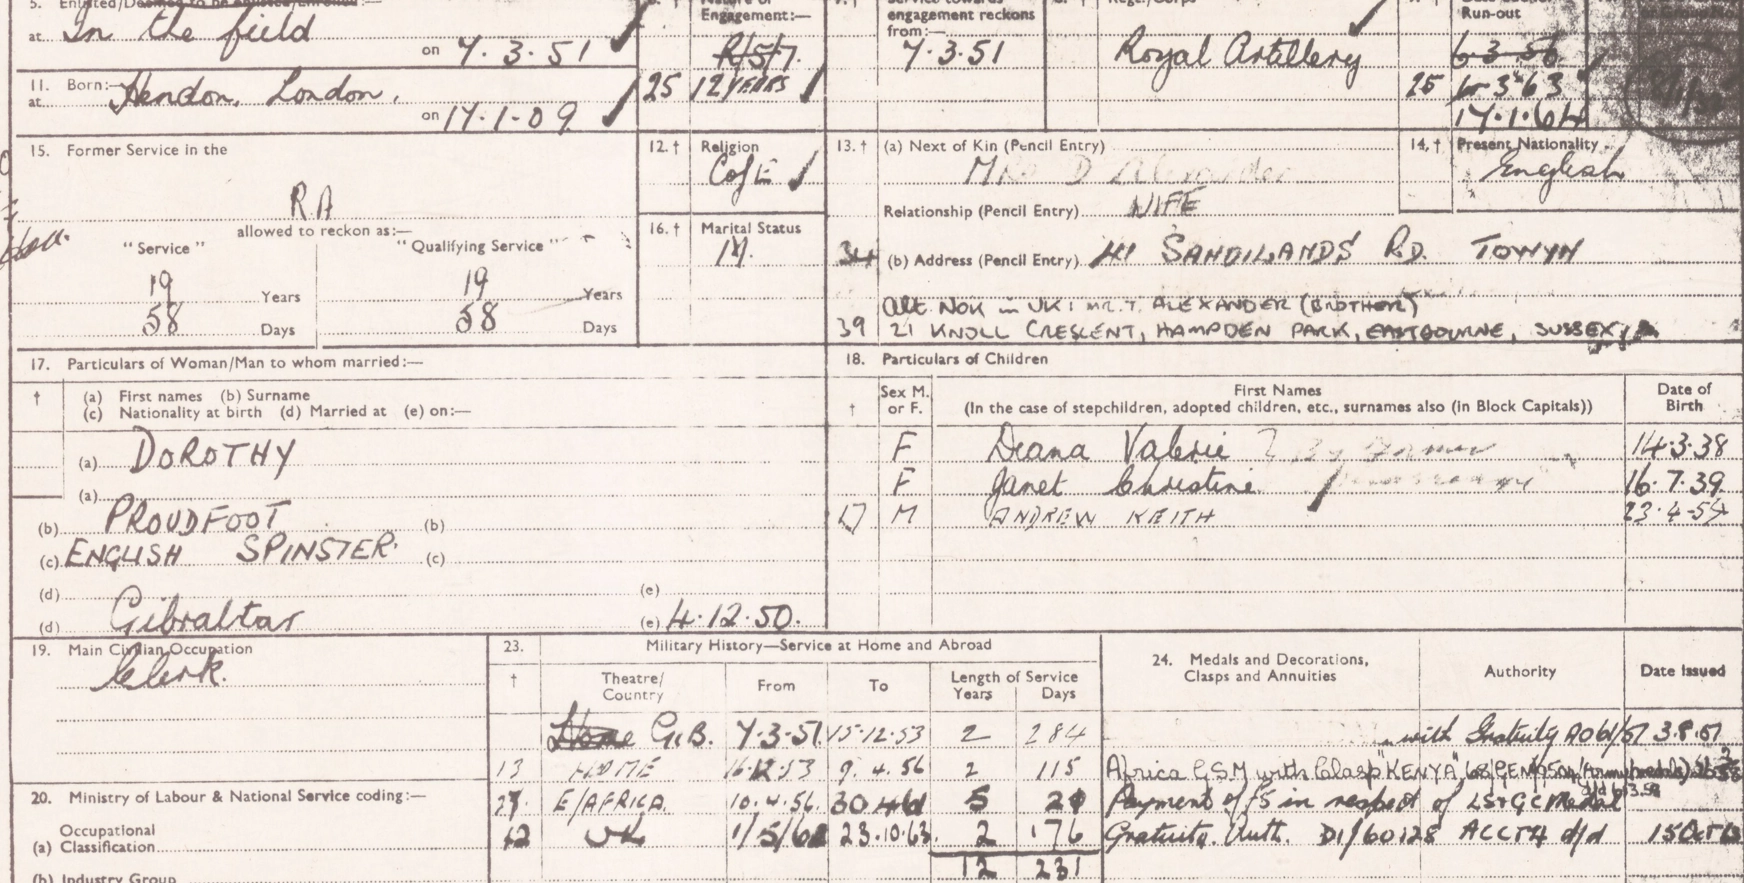 5. Enlisted/Deemed to be enlisted/Enrolled:—
at In the field on 7.3.51
Engagement:—
R/5/7.
25 12 YEARS
Service towards engagement reckons from:—
7.3.51
Royal Artillery
Run-out
6.3.56
25 6.3.63
17.1.64
11. Born:—
at Hendon, London.
on 17.1.09
15. Former Service in the
RA
allowed to reckon as:—
"Service" "Qualifying Service"
19 Years 19 Years
58 Days 58 Days
12.† Religion
C of E
16.† Marital Status
M.
13.† (a) Next of Kin (Pencil Entry)
Mrs D Alexander
Relationship (Pencil Entry) WIFE
34 (b) Address (Pencil Entry) 41 SANDILANDS RD. TOWYN
Alt. NOK in UK: MR. T. ALEXANDER (BROTHER)
39 21 KNOLL CRESCENT, HAMPDEN PARK, EASTBOURNE, SUSSEX
14.† Present Nationality
English
17. Particulars of Woman/Man to whom married:—
† (a) First names (b) Surname
(c) Nationality at birth (d) Married at (e) on:—
(a) DOROTHY
(a)
(b) PROUDFOOT (b)
(c) ENGLISH SPINSTER. (c)
(d) (e)
(d) Gibraltar (e) 4.12.50.
18. Particulars of Children
† Sex M. or F. First Names Date of Birth
(In the case of stepchildren, adopted children, etc., surnames also (in Block Capitals))
F Deana Valerie 14.3.38
F Janet Christine 16.7.39
17 M ANDREW KEITH 23.4.54
19. Main Civilian Occupation
Clerk.
20. Ministry of Labour & National Service coding:—
Occupational
(a) Classification
(b) Industry Group
23. Military History—Service at Home and Abroad
† Theatre/Country From To Length of Service Years Days
Home GIB. 7.3.51 15.12.53 2 284
13 HOME 16.12.53 9.4.56 2 115
E/AFRICA. 10.4.56. 5
12 UK 23.10.63. 2 176
12 231
24. Medals and Decorations, Clasps and Annuities Authority Date Issued
with Gratuity AO 61/57 3.8.57
Africa G.S.M with Clasp "KENYA"
Payment of £5 in respect of LS&GC Medal
Gratuity. Auth. D1/60128 ACCT4 d/d 15 Oct 63